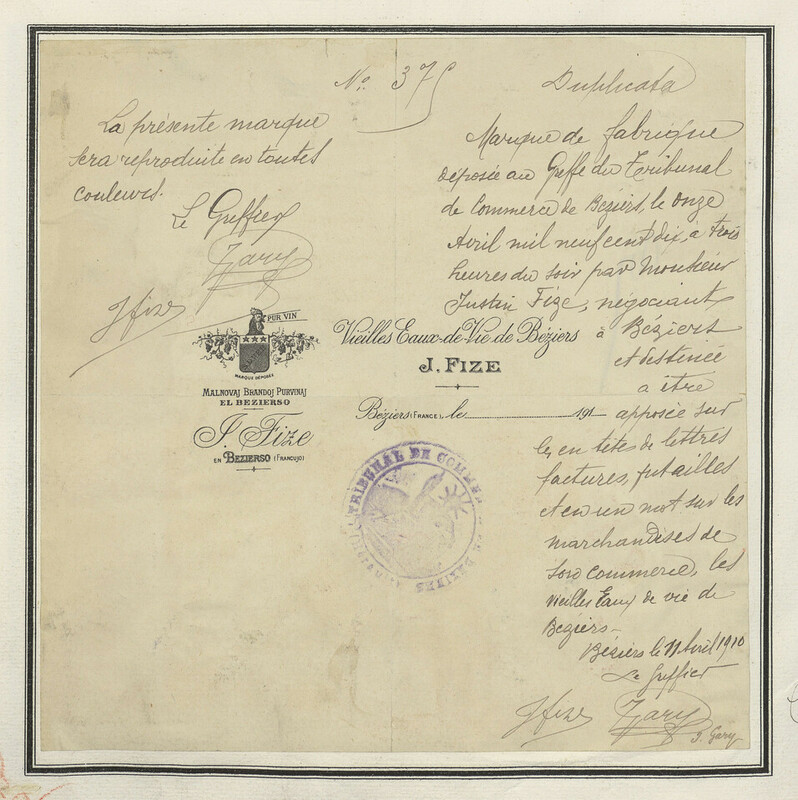 Nº 375
Duplicata
La présente marque
sera reproduite en toutes
couleurs.
Le Greffier
Gary
J Fize
PUR VIN
MARQUE DÉPOSÉE
MALNOVAJ BRANDOJ PURVINAJ
EL BEZIERSO
J. Fize
EN BEZIERSO (FRANCUJO)
Vieilles Eaux-de-Vie de Béziers
J. FIZE
Béziers (FRANCE), le 191
TRIBUNAL DE COMMERCE DE BEZIERS
Marque de fabrique
déposée au Greffe du Tribunal
de Commerce de Béziers, le onze
Avril mil neuf cent dix, à trois
heures du soir par Monsieur
Justin Fize, négociant
à Béziers
et destinée
a être
apposée sur
les en têtes de lettres
factures, futailles
et en un mot sur les
marchandises de
son commerce, les
Vieilles Eaux de vie de
Béziers
Béziers le 11 Avril 1910
Le Greffier
J Fize Gary
J. Gary